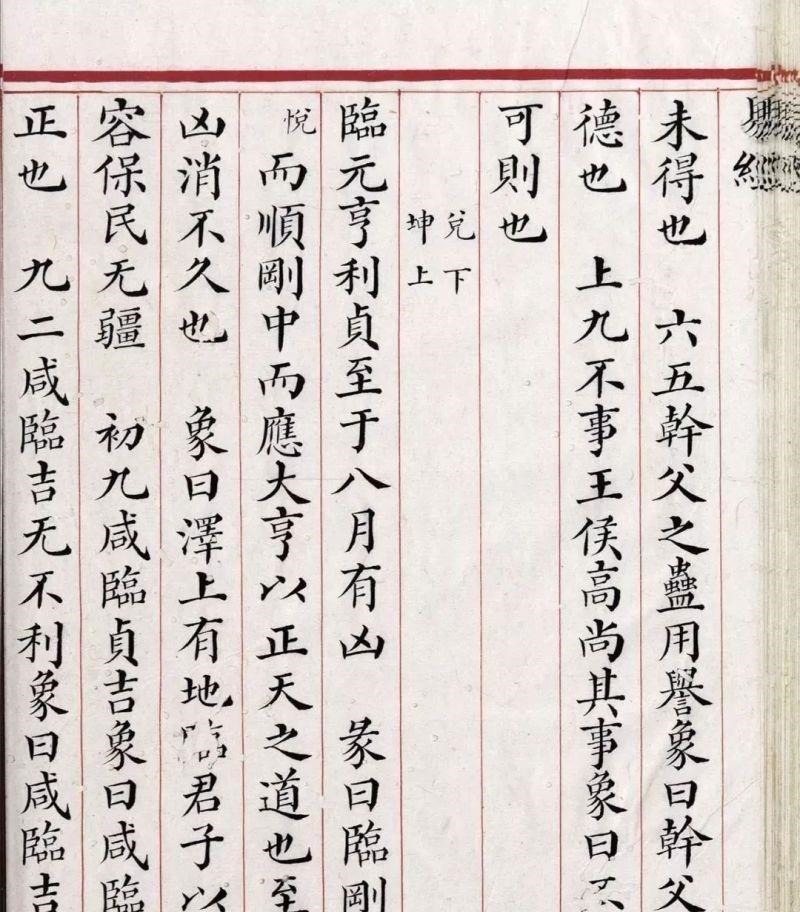 易經
未得也 六五幹父之蠱用譽象曰幹父
德也 上九不事王侯高尚其事象曰不
可則也
兌下
坤上
臨元亨利貞至于八月有凶 彖曰臨剛
悅而順剛中而應大亨以正天之道也至
凶消不久也 象曰澤上有地臨君子以
容保民无疆 初九咸臨貞吉象曰咸臨
正也 九二咸臨吉无不利象曰咸臨吉